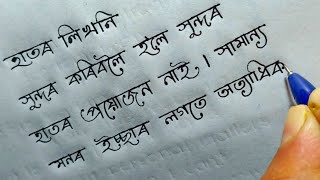 হাতৰ লিখনি
সুন্দৰ কৰিবলৈ হ'লে সুন্দৰ
হাতৰ প্ৰয়োজন নাই। সামান্য
মনৰ ইচ্ছাৰ লগতে অত্যাধিক